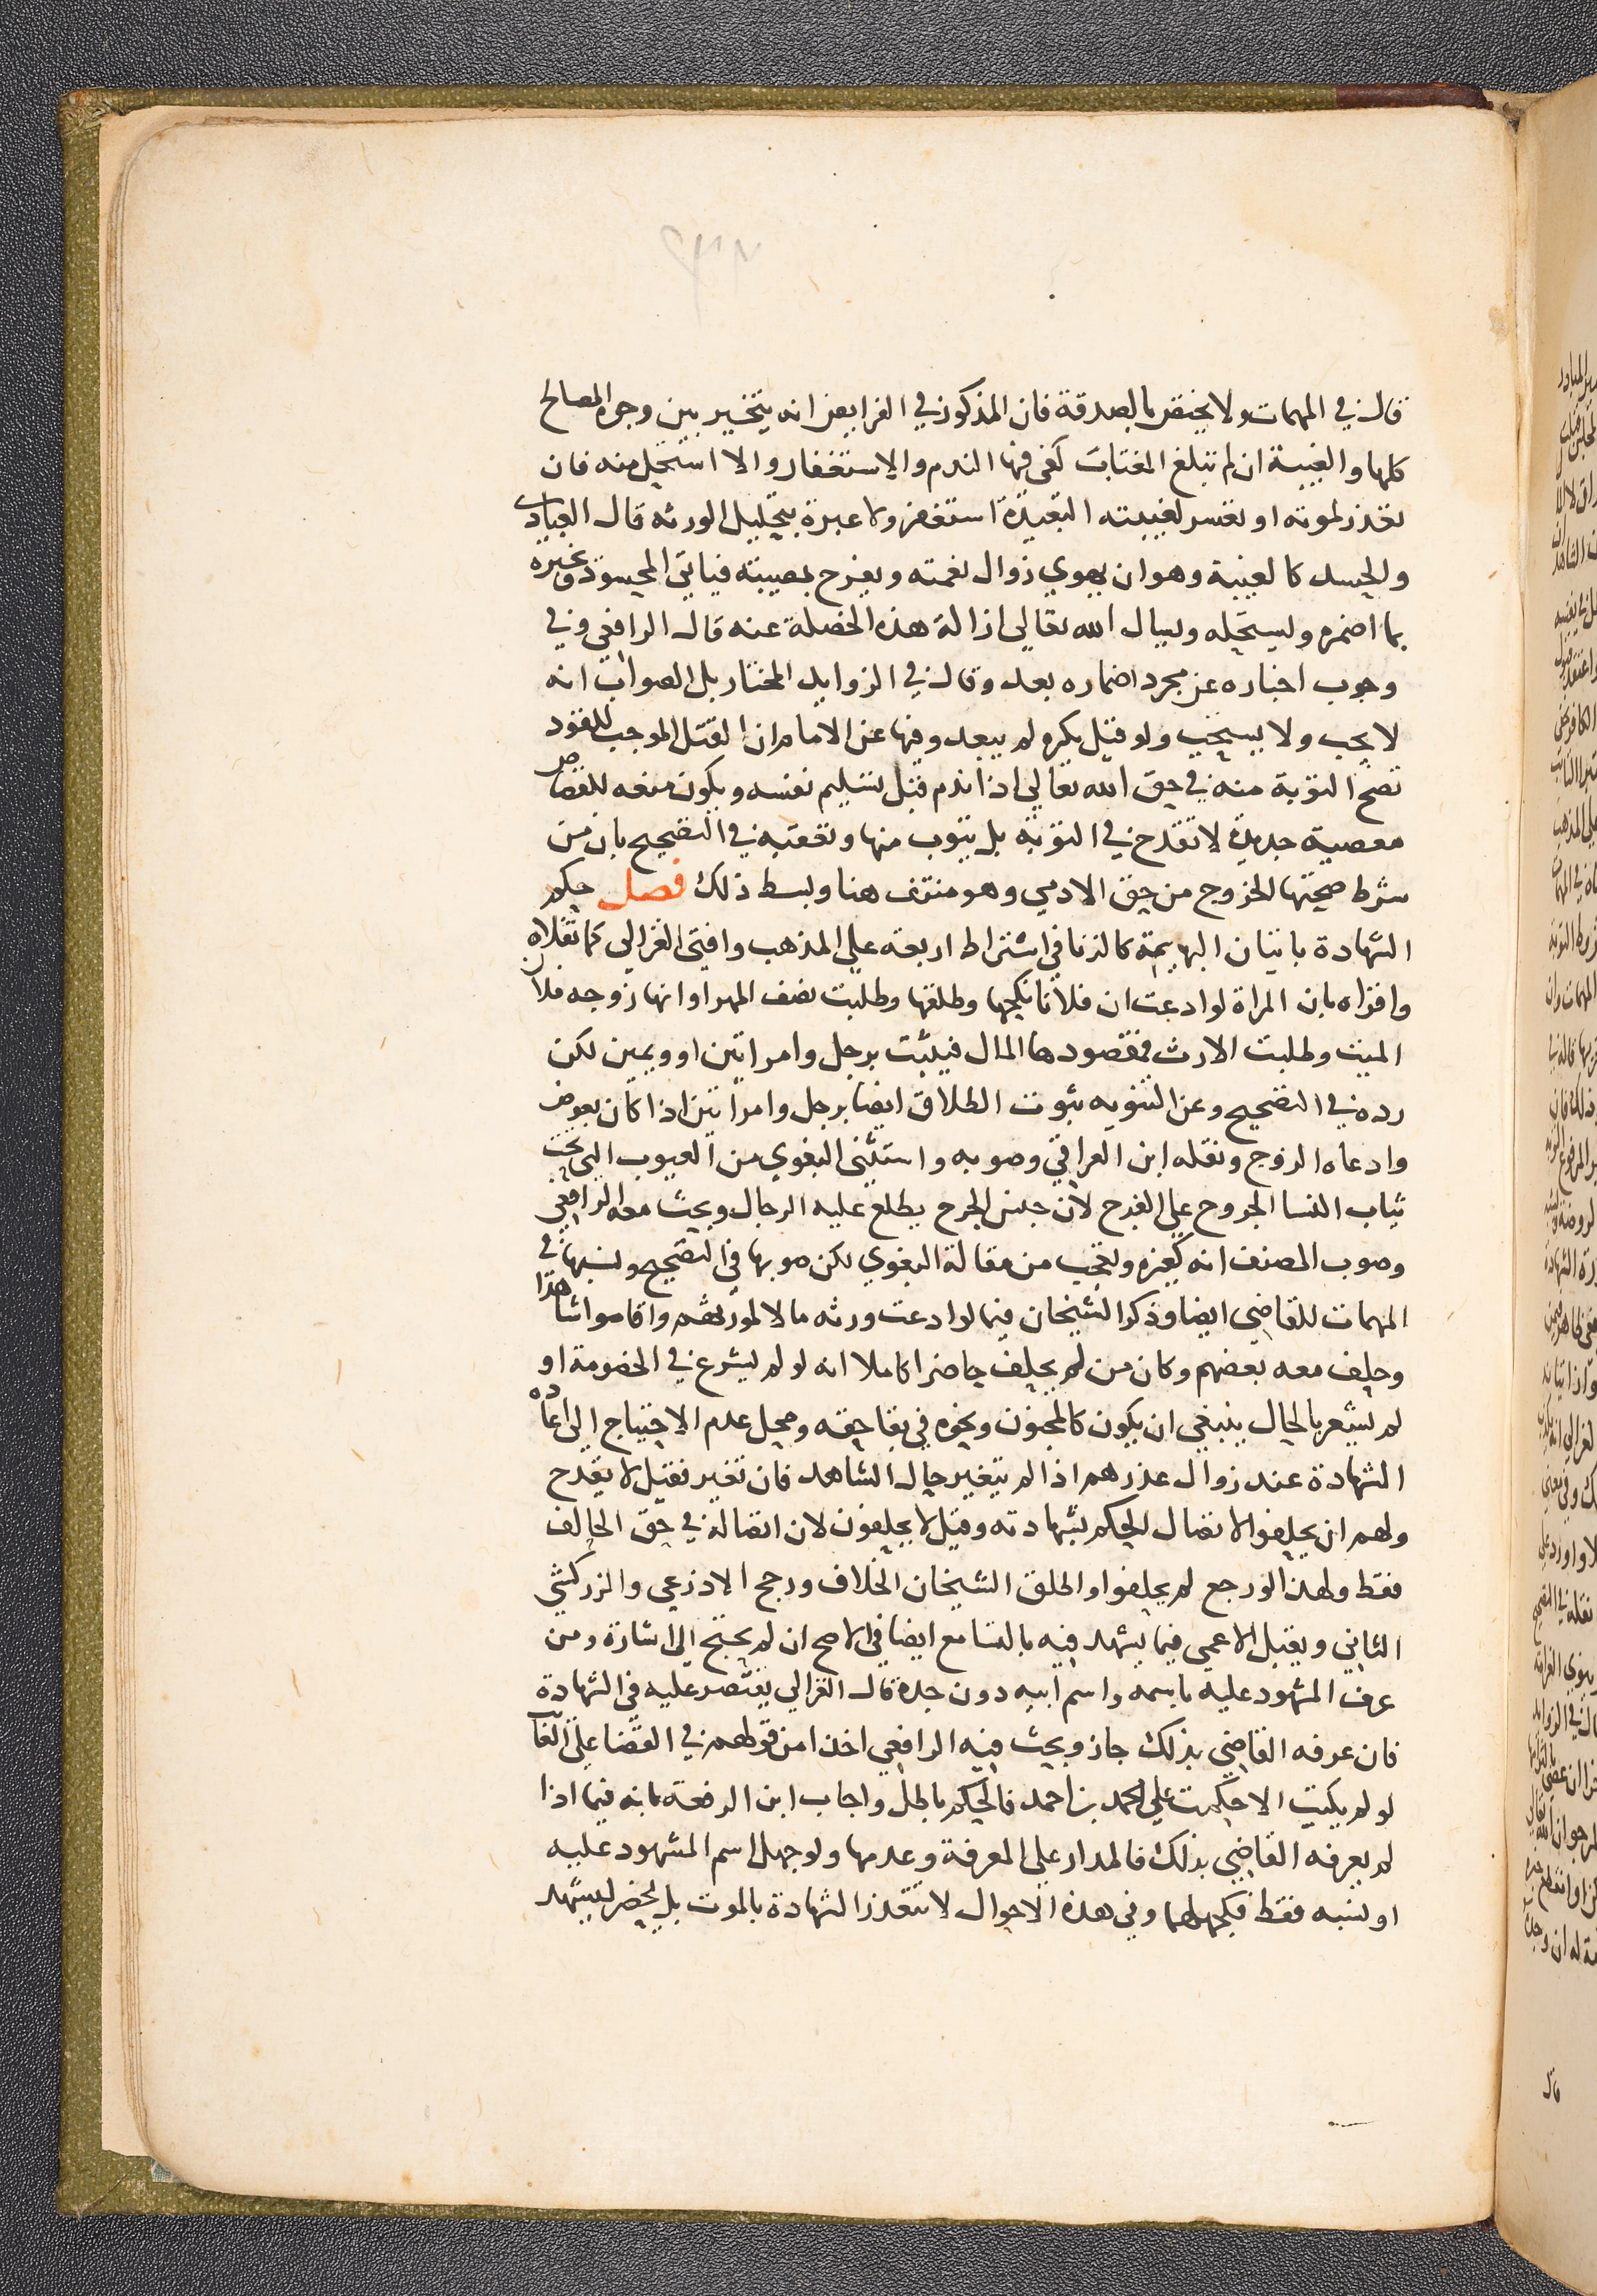 قال في المهمات ولا يختص بالصدقة فان المذكور في الفرايض انه يتخير بين وجوه المصالح
كلها والغيبة ان لم تبلغ المغتاب كفى فيها الندم والاستغفار والا استحل منه فان
تعذر لموته او تعسر لغيبته البعيدة استغفر ولا عبرة بتحليل الورثه قال العبادي
والحسد كالغيبة وهو ان يهوي زوال نعمته ويفرح بمصيبته فياتي المحسود ويخبره
بما اضمره ويستحله ويسال الله تعالي ازالة هذه الخصلة عنه قال الرافعي وفي
وجوب اخباره عن مجرد اضماره بعد وقال في الزوايد المختار بل الصواب انه
لا يجب ولا يستحب ولو قيل يكره لم يبعد وفيها عن الامام ان القتل الموجب للقود
تصح التوبة منه في حق الله تعالي اذا ندم قبل تسليم نفسه ويكون منعه للقصاص
معصية جديدة لا تقدح في التوبة بل يتوب منها وتعقبه في التصحيح بان من
شرط صحتها الخروج من حق الادمي وهو منتف هنا وبسط ذلك فصل حكم
الشهادة باتيان البهيمة كالزنا في اشتراط اربعة علي المذهب وافتى الغزالي كما نقلاه
واقراه بان المراة لو ادعت ان فلانا نكحها وطلقها وطلبت نصف المهر او انها زوجه فلان
الميت وطلبت الارث فمقصودها المال فيثبت برجل وامراتين او ويمين لكن
رده في التصحيح وعن التنويه ثبوت الطلاق ايضا برجل وامراتين اذا كان بعوض
وادعاه الزوج ونقله ابن العراقي وصوبه واستثنى البغوي من العيوب التي تحت
ثياب النسا الجروح علي الفرج لان جنس الجرح يطلع عليه الرجال وبحث معه الرافعي
وصوب المصنف انه كغيره وتعجب من مقالة البغوي لكن صوبها في التصحيح ونسبها في
المهمات للقاضي ايضا وذكر الشيخان فيما لو ادعت ورثه مالا لمورثهم واقاموا شاهدا
وحلف معه بعضهم وكان من لم يحلف حاضرا كاملا انه لو لم يشرع في الخصومة او
لم يشعر بالحال ينبغي ان يكون كالمجنون ونحوه في بقا حقه ومحل عدم الاحتياج الى اعاده
الشهادة عند زوال عذرهم اذا لم يتغير حال الشاهد فان تغير فقيل لا يقدح
ولهم ان يحلفوا لاتصال الحكم بشهادته وقيل لا يحلفون لان اتصاله في حق الحالف
فقط ولهذا لو رجع لم يحلفوا واطلق الشيخان الخلاف ورجح الاذرعي والزركشي
الثاني ويقبل الاعمي فيما يشهد فيه بالتسامع ايضا في الاصح ان لم يحتج الى اشارة ومن
عرف المشهود عليه باسمه واسم ابيه دون جده قال الغزالي يقتصر عليه في الشهادة
فان عرفه القاضي بذلك جاز وبحث فيه الرافعي اخذا من قولهم في القضا على الغا
لو لم يكتب الا حكمت علي محمد بن احمد فالحكم باطل واجاب ابن الرفعة بانه فيما اذا
لم يعرفه القاضي بذلك فالمدار علي المعرفة وعدمها ولو جهل اسم المشهود عليه
او نسبه فقط فكجهلهما وفي هذه الاحوال لا تتعذر الشهادة بالموت بل يحضر ليشهد